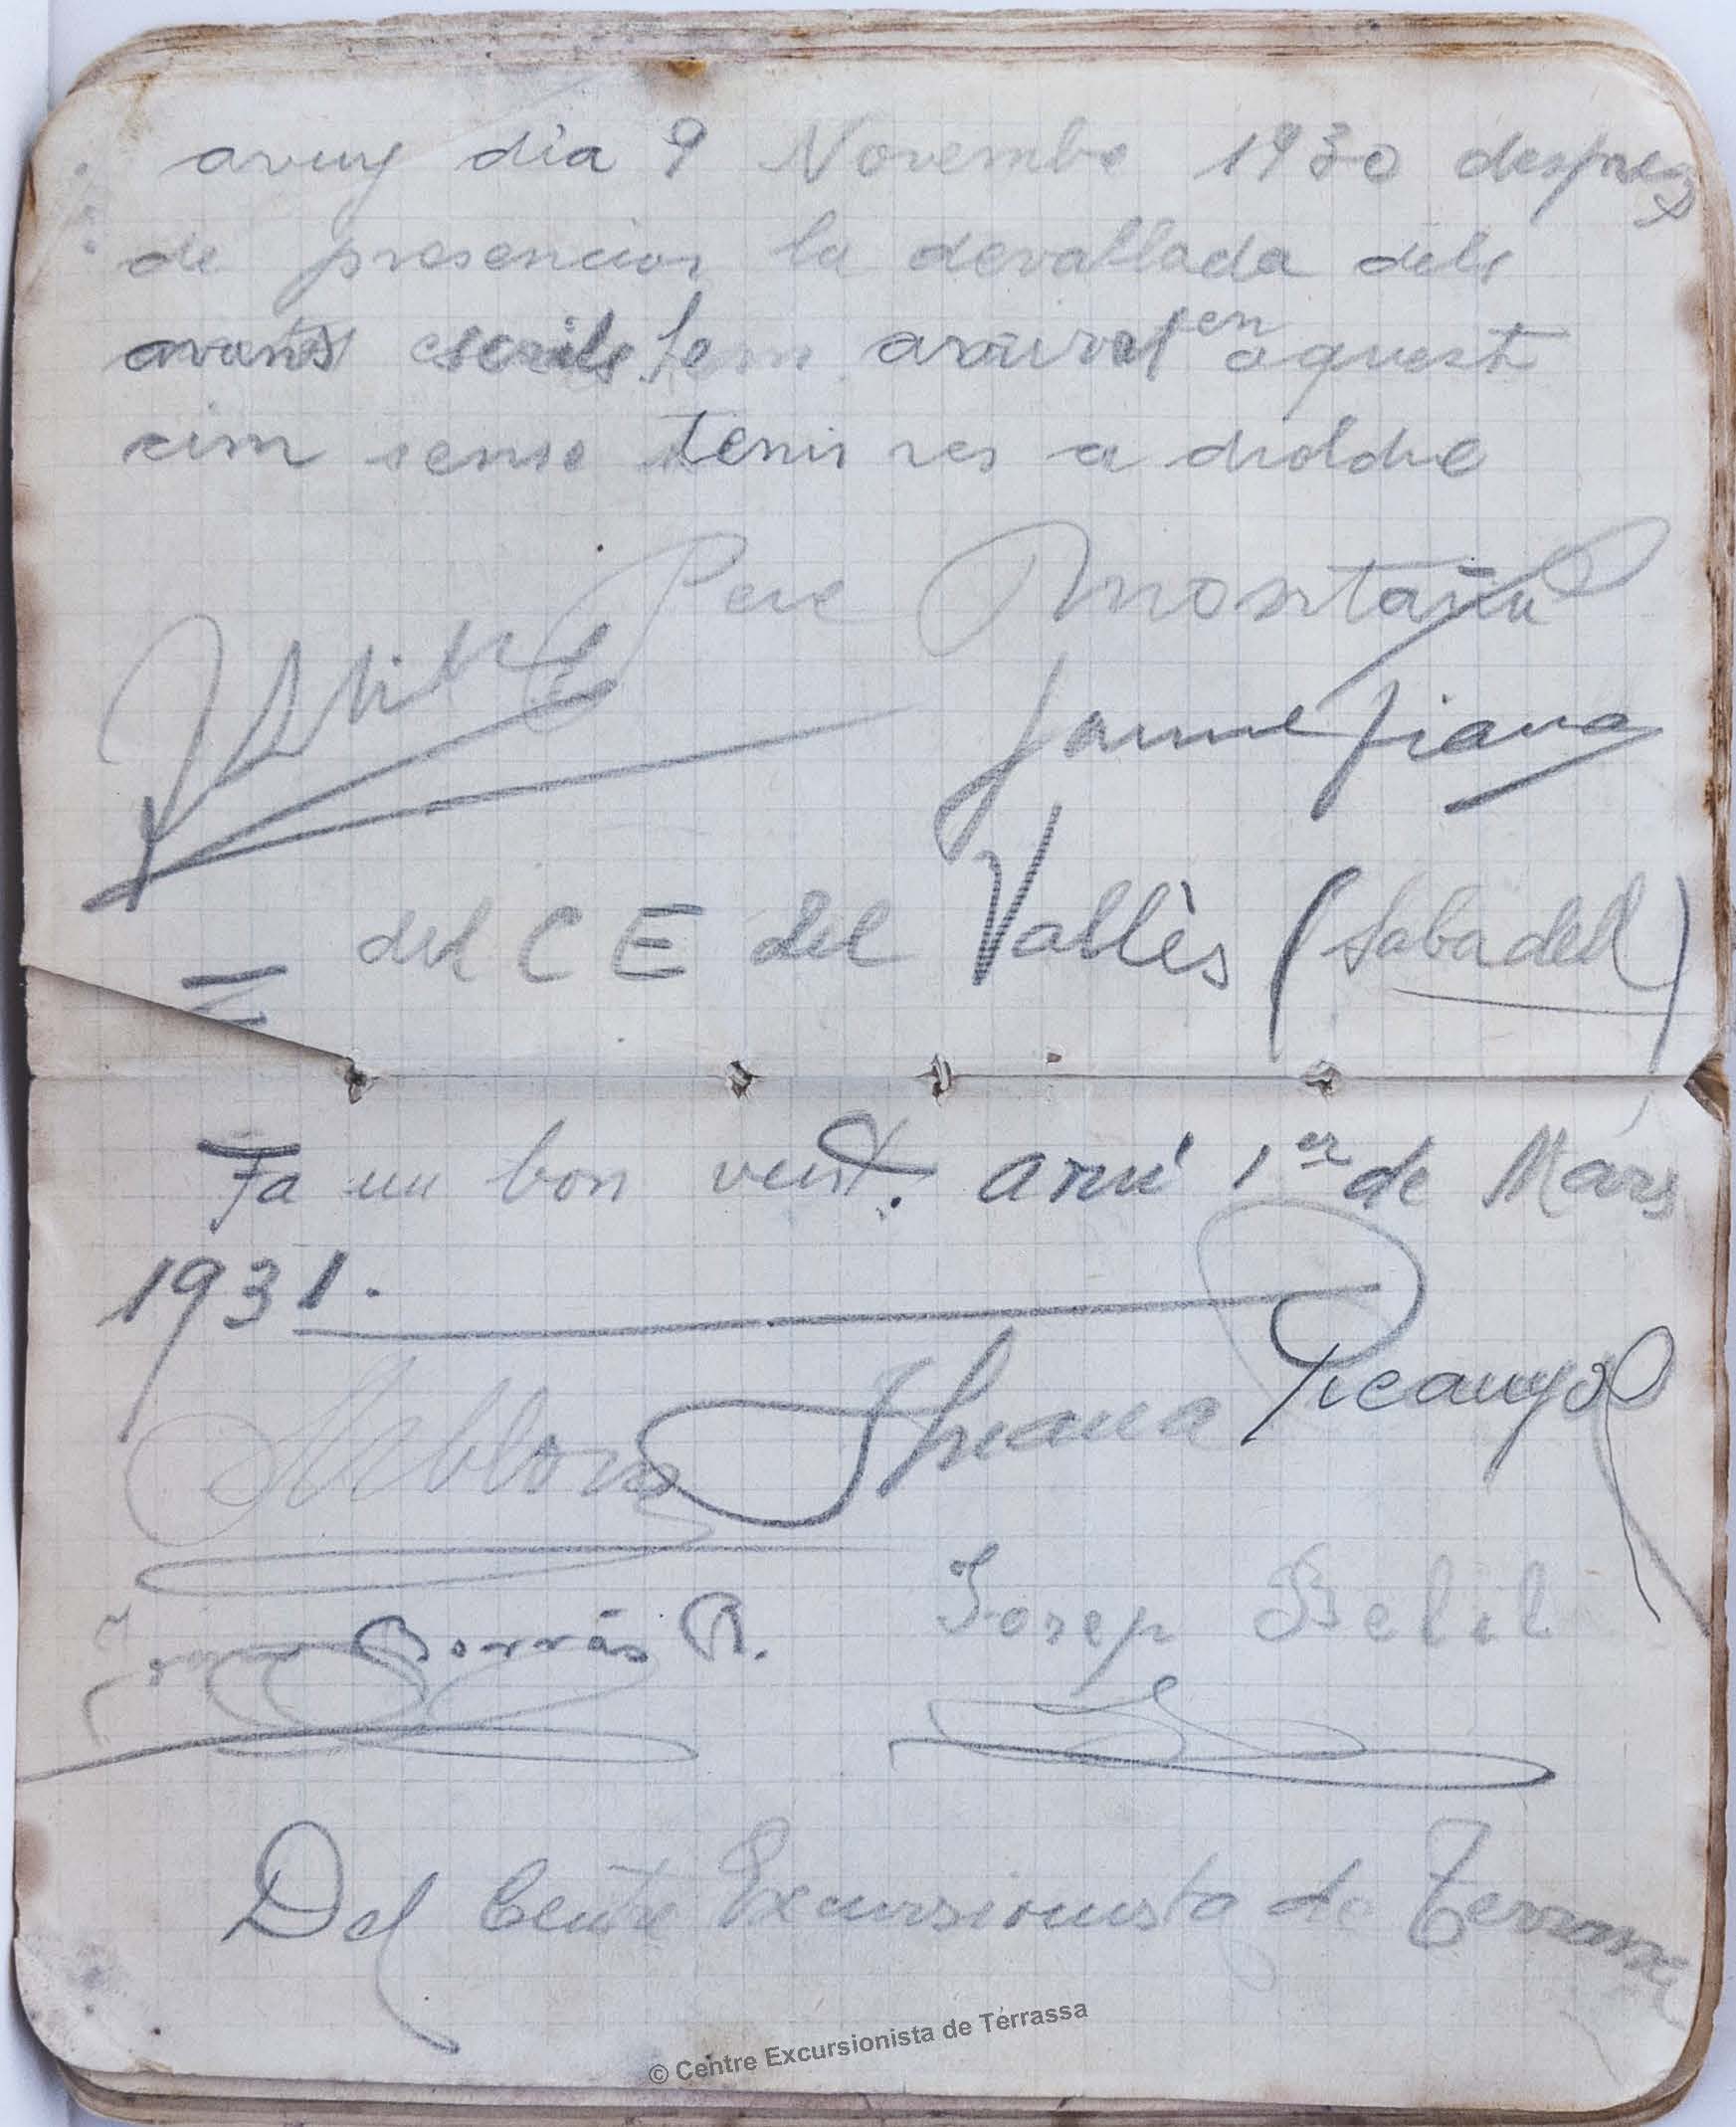 avuy dia 9 Novembre 1930 despres
de presenciar la devallada dels
avants escrits hem arrivat en aquest
cim sense tenir res a doldre
Pere Montañá
Jaume
del C E del Vallès (Sabadell)
Fa un bon vent. avui 1er de Márs
1931.
Picanyol
Borrás R. Josep Belil
Del Centre Excursionista de Terrassa
© Centre Excursionista de Terrassa